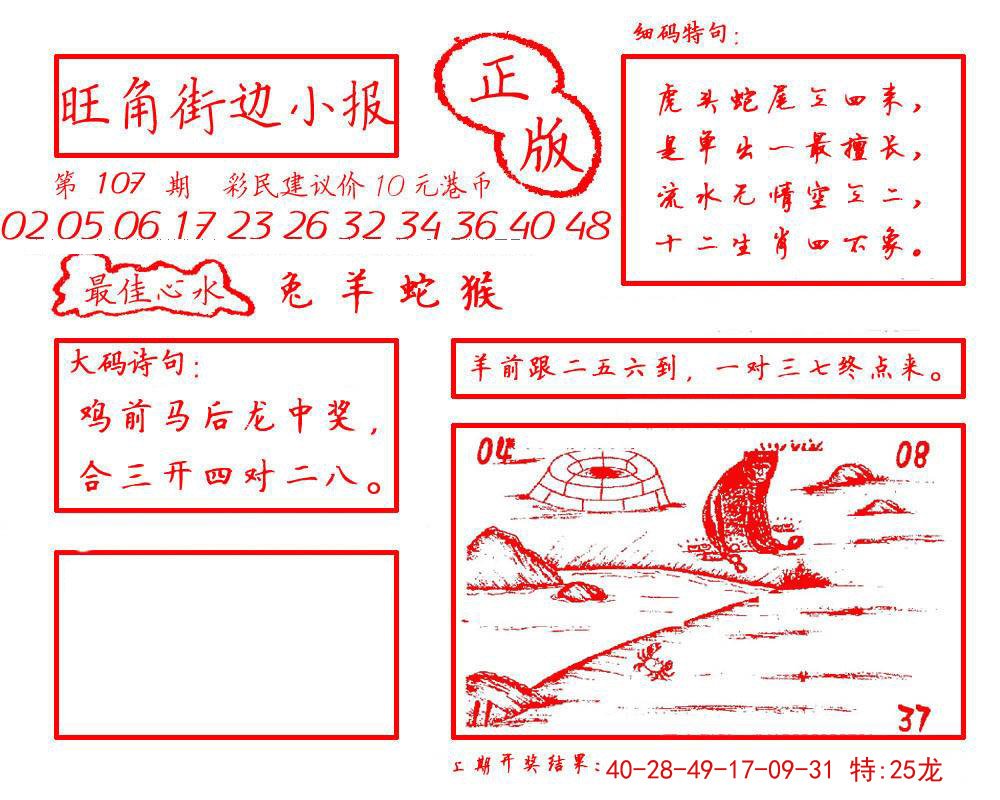 旺角街边小报
正版
第 107 期 彩民建议价10元港币
02 05 06 17 23 26 32 34 36 40 48
最佳心水 兔羊蛇猴
细码特句：
虎头蛇尾三四来，
是单出一最擅长，
流水无情空三二，
十二生肖四不象。
大码诗句：
鸡前马后龙中奖，
合三开四对二八。
羊前跟二五六到，一对三七终点来。
04
08
11
37
上期开奖结果：40-28-49-17-09-31 特：25龙